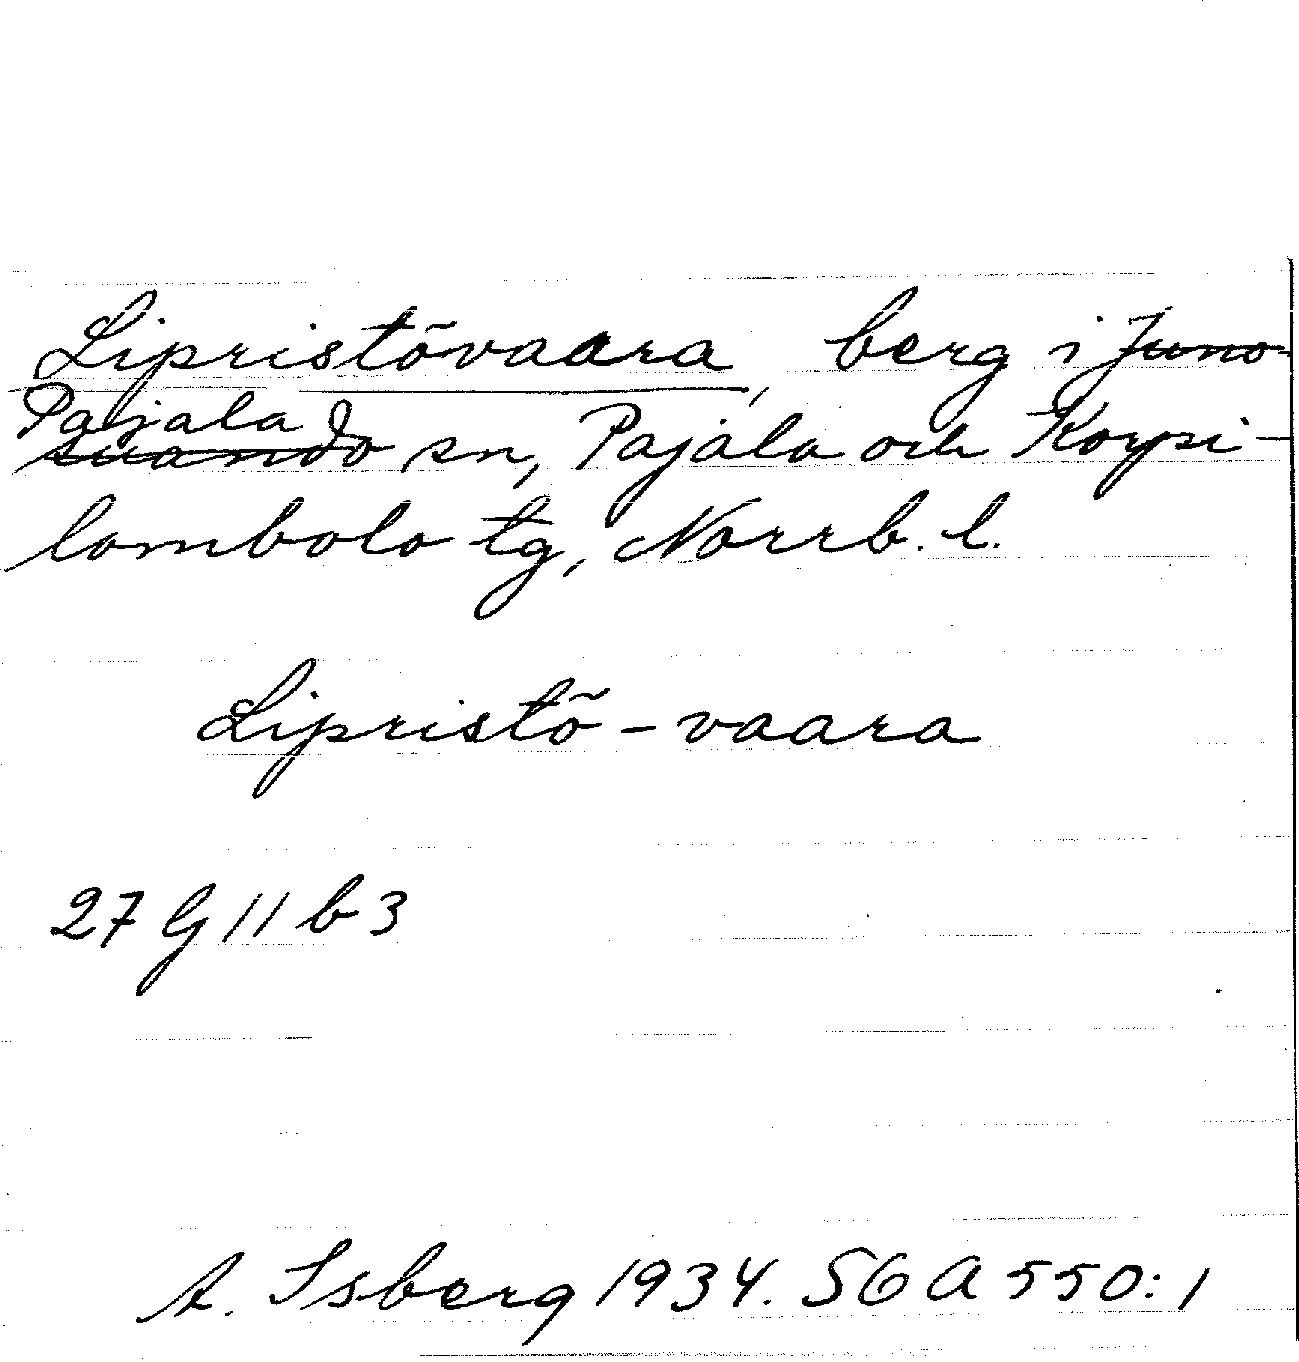 Lipristõvaara, berg i Juno-
Pajala
suando sn, Pajala och Korpi-
lombolo tg, Norrb. l.
Lipristõ - vaara
27 G 11 b 3
A. Isberg 1934. SGA 550:1